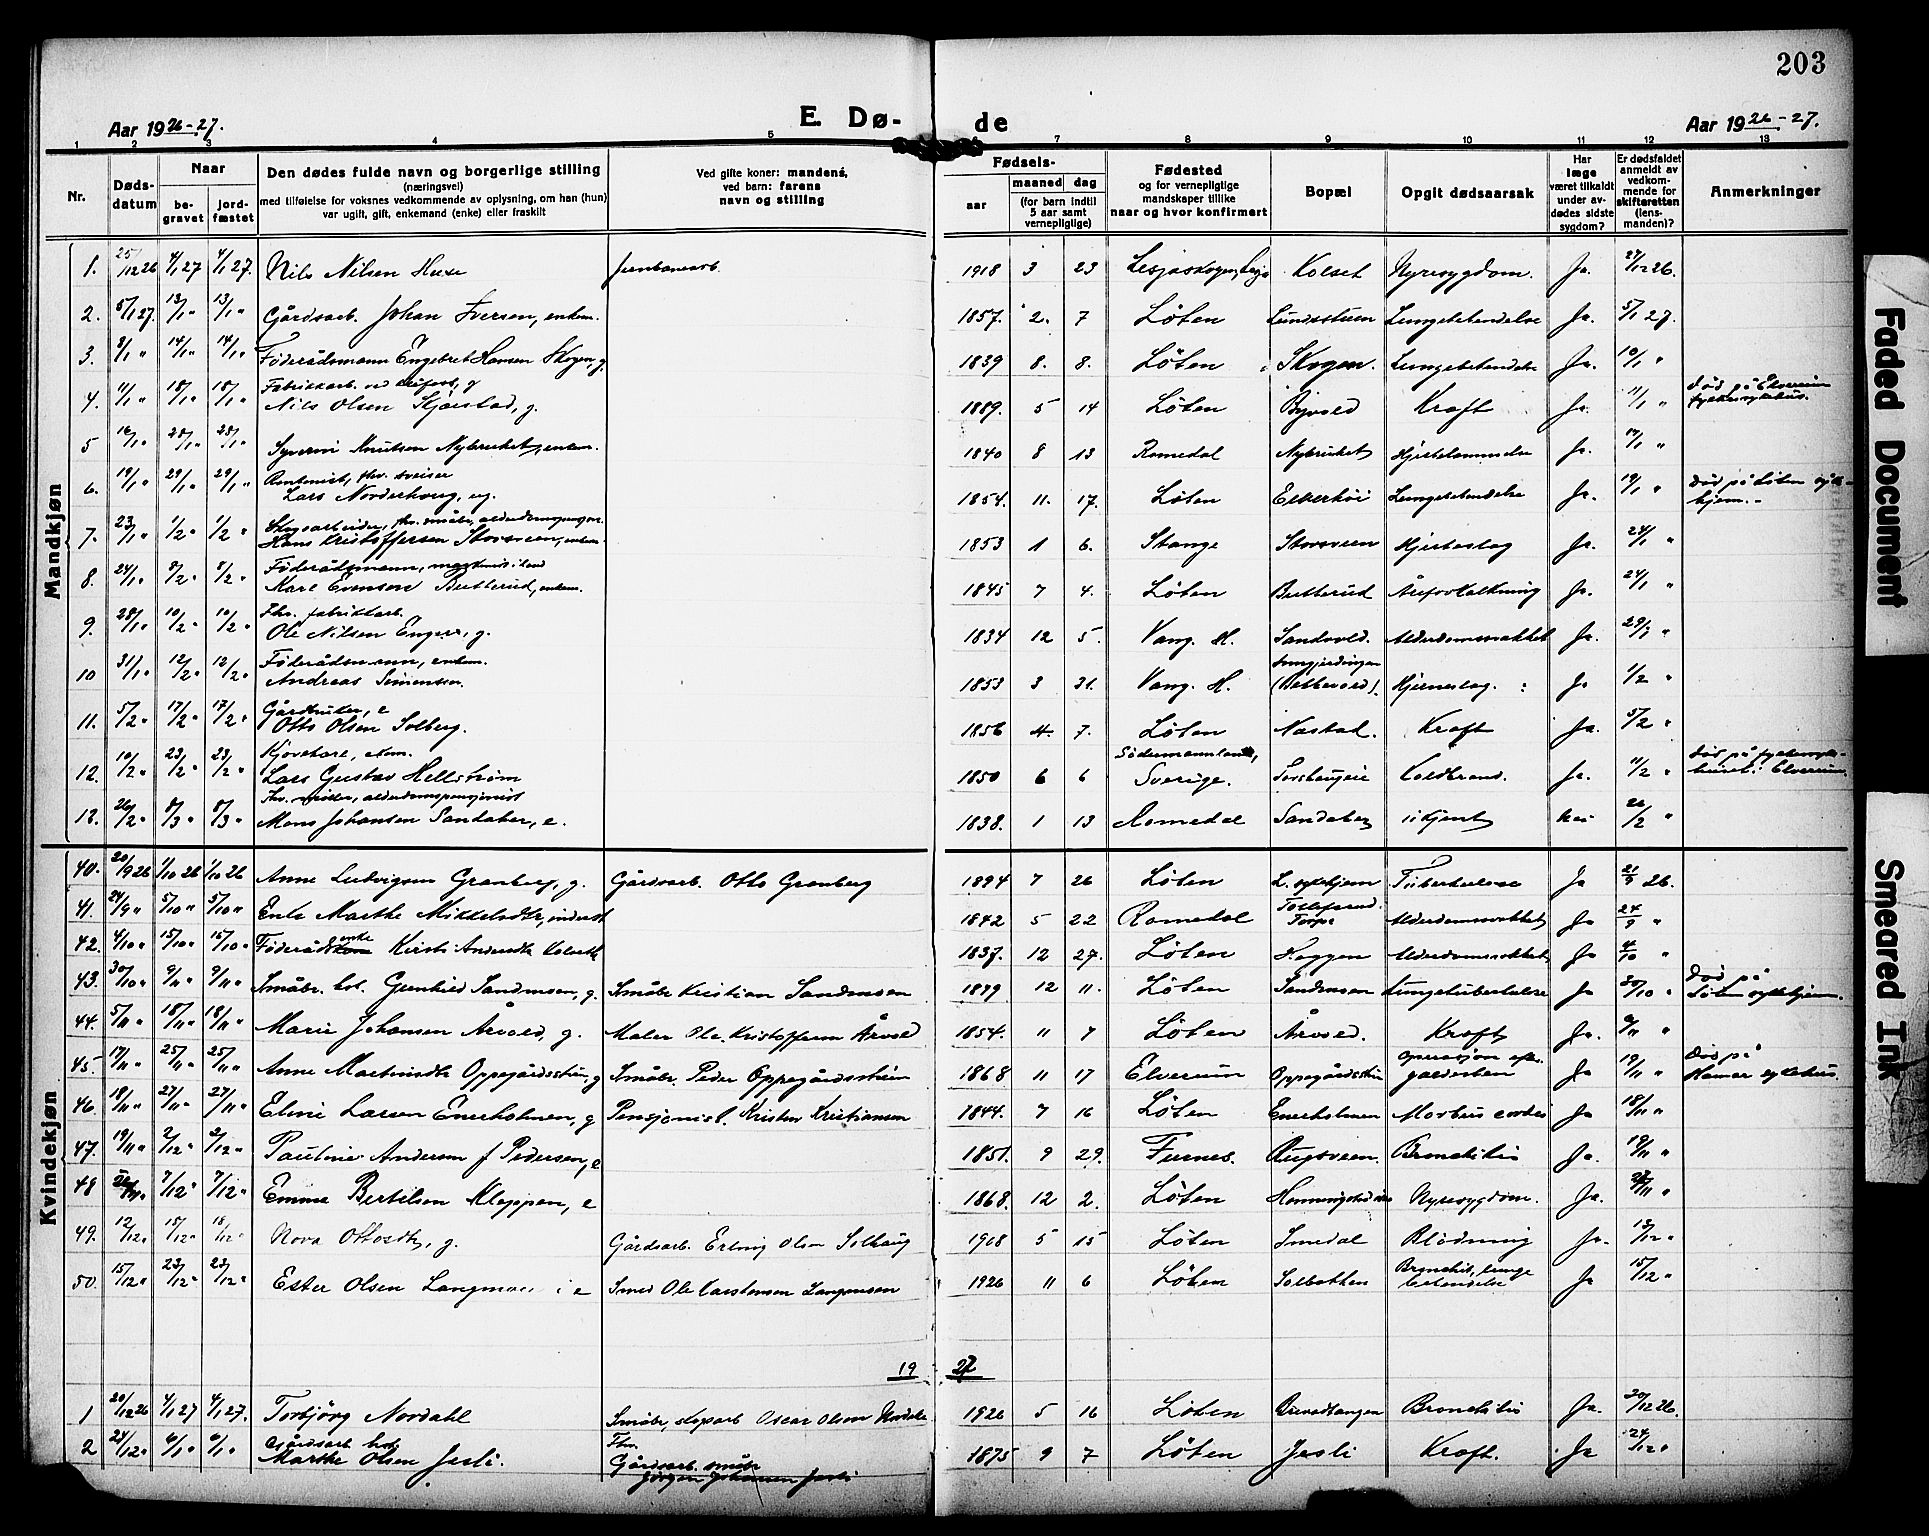 203
Aar 1926-27.
E. Dø-
de
Aar 1926-27.
1 2 3 4 5 6 7 8 9 10 11 12 13
Nr.
Døds-
datum
Naar
be-
gravet
jord-
fæstet
Den dødes fulde navn og borgerlige stilling
(næringsvei)
med tilføielse for voksnes vedkommende av oplysning, om han (hun)
var ugift, gift, enkemand (enke) eller fraskilt
Ved gifte koner: mandens,
ved barn: farens
navn og stilling
Fødsels-
aar
maaned dag
(for barn indtil
5 aar samt
vernepligtige)
Fødested
og for vernepligtige
mandskaper tillike
naar og hvor konfirmert
Bopæl
Opgit dødsaarsak
Har
læge
været tilkaldt
under av-
dødes sidste
sygdom?
Er dødsfaldet
anmeldt av
vedkom-
mende for
skifteretten
(lens-
manden)?
Anmerkninger
Mandkjøn
1. 25/12 26 4/1 27 4/1 27. Nils Nilsen 1918 3 23 Kolset Nyresygdom. Ja. 27/12 26.
2. 5/1 27. 13/1 " 13/1 " Gårdsarb. Johan Iversen, enkem. 1857. 2. 7 Løten Lundsstuen Lungebetendelse Ja. 5/1 27.
3. 8/1 " 14/1 " 14/1 " Føderådsmann Engebret Hansen Skogen, g. 1839 8. 8. Løten Skogen. Lungebetendelse Ja. 10/1 "
4. 11/1 " 18/1 " 18/1 " Fabrikkarb. ved
Nils Olsen Skjørstad, g. 1889. 5 14 Løten Kræft Ja. 11/1 " Død på Elverum
fylkessykehus.
5 16/1 " 28/1 " 28/1 " Syverin Knutsen Nybruket, enkem. 1840 8 13 Romedal Nybruket Hjertelammelse Ja. 17/1 "
6. 19/1 " 29/1 " 29/1 " Rentenist, fhv. sveiser
Lars Norderhaug, ug. 1854. 11. 17. Løten Lungebetendelse Ja. 19/1 " Død på Løten syke-
hjem.
7. 23/1 " 1/2 " 1/2 " Skogsarbeider, fhv. småbr., alderdomspensjon.
Hans Kristoffersen Storsveen, enkem. 1853 1 6. Stange Storsveen Hjerteslag Ja. 24/1 "
8. 24/1 " 8/2 " 8/2 " Føderådsmann,
Karl Evensen Butterud, enkem. 1845 7 4. Løten Butterud Åreforkalkning Ja. 24/1 "
9. 28/1 " 10/2 " 10/2 " Fhv. fabrikkarb.
Ole Nilsen Engen, g. 1834 12 5. Vang. H. Sandvold. Alderdomssvakhet Ja. 29/1 "
10 31/1 " 12/2 " 12/2 " Føderådsmann, enkem.
Andreas Simensen. 1853 3 31. Vang. H. Hjerneslag. Ja 1/2 "
11. 5/2 " 17/2 " 17/2 " Gårdbruker, e
Otto Olsen Solberg. 1856 4. 7. Løten Nastad. Kræft Ja. 5/2 "
12. 10/2 " 23/2 " 23/2 "
Lars Gustav Hellstrøm 1850 6 6 Södermannland,
Sverige. Koldbrand. Ja. 11/2 " Død på fylkessyke-
huset i Elverum.
13. 26/2 " 8/3 " 8/3 " Fhv. møller, alderdomspensjonist
Mons Johansen Sandaker, e. 1838. 1 13 Romedal Sandaker ukjent Nei 26/2 "
Kvindekjøn
40. 20/9 26 1/10 26 1/10 26 Anne Ludvigsen Granberg, g. Gårdsarb. Otto Granberg 1894 7 26 Løten L. sykehjem Tuberkulose Ja 21/9 26.
41. 24/9 " 5/10 " 5/10 " Enke Marthe Mikkelsdtr, inderst 1842 5 22 Romedal Alderdomssvakhet Ja 24/9 "
42. 4/10 " 15/10 " 15/10 " Føderådsenke Kirsti Andersdtr 1837. 12 27. Løten Haggen Alderdomssvakhet Ja 4/10 "
43. 30/10 " 9/11 " 9/11 " Småbr. kone Gunhild Sandmoen, g. Småbr. Kristian Sandmoen 1899 12 11. Løten Sandmoen Lungetuberkulose Ja 30/10 " Død på
Løten sykehjem.
44. 5/11 " 18/11 " 18/11 " Marie Johansen Årvold, g. Maler Ole Kristoffersen Årvold 1854. 11 7 Løten Årvold. Kræft Ja. 8/11 "
45. 17/11 " 25/11 " 25/11 " Anne Martinsdtr Oppegårdsstuen, g Småbr. Peder Oppegårdsstuen 1868 11 17 Elverum Oppegårdsstuen Operasjon efter
galdesten Ja 19/11 " Død på
Hamar sykehus.
46. 18/11 " 27/11 " 27/11 " Eline Larsen Enerholmen, g Pensjonist. Kristen Kristiansen 1844. 7 16 Løten Enerholmen Morbus cordis Ja 18/11 "
47. 19/11 " 2/12 " 2/12 " Pauline Andersen f. Pedersen, e 1851. 9 29. Furnes. Rugsveen. Bronchitis Ja. 19/11 "
48 26/11 " 7/12 " 7/12 " Emma Bertilsen Kloppen, e 1868. 12 2. Løten Nyresygdom. Ja. 27/11 "
49. 12/12 " 15/12 " 15/12 " Nora Ottosdtr, g. Gårdsarb. Erling Olsen Solhaug 1908 5 15 Løten Smedal Blødning Ja. 13/12 "
50. 15/12 " 23/12 " 23/12 " Ester Olsen Langmoen Smed Ole Karstensen Langmoen 1926 11 6 Løten Solbakken Bronchit, lunge
betendelse Ja 15/12 "
19 27
1 20/12 26 4/1 27 4/1 27. Torbjörg Nordahl Småbr, skogsarb Oscar Olsen Nordahl 1926 5 16 Løten Bronchitis Ja. 20/12 26.
2 24/12 " 6/1 " 6/1 " Gårdsarb. kone
Marthe Olsen Jesli. Fhv.
Gårdsarb. småbr
Jörgen Johansen Jesli 1875 9 7 Løten Jesli Kræft. Ja 24/12 "
Faded Document
Smeared Ink